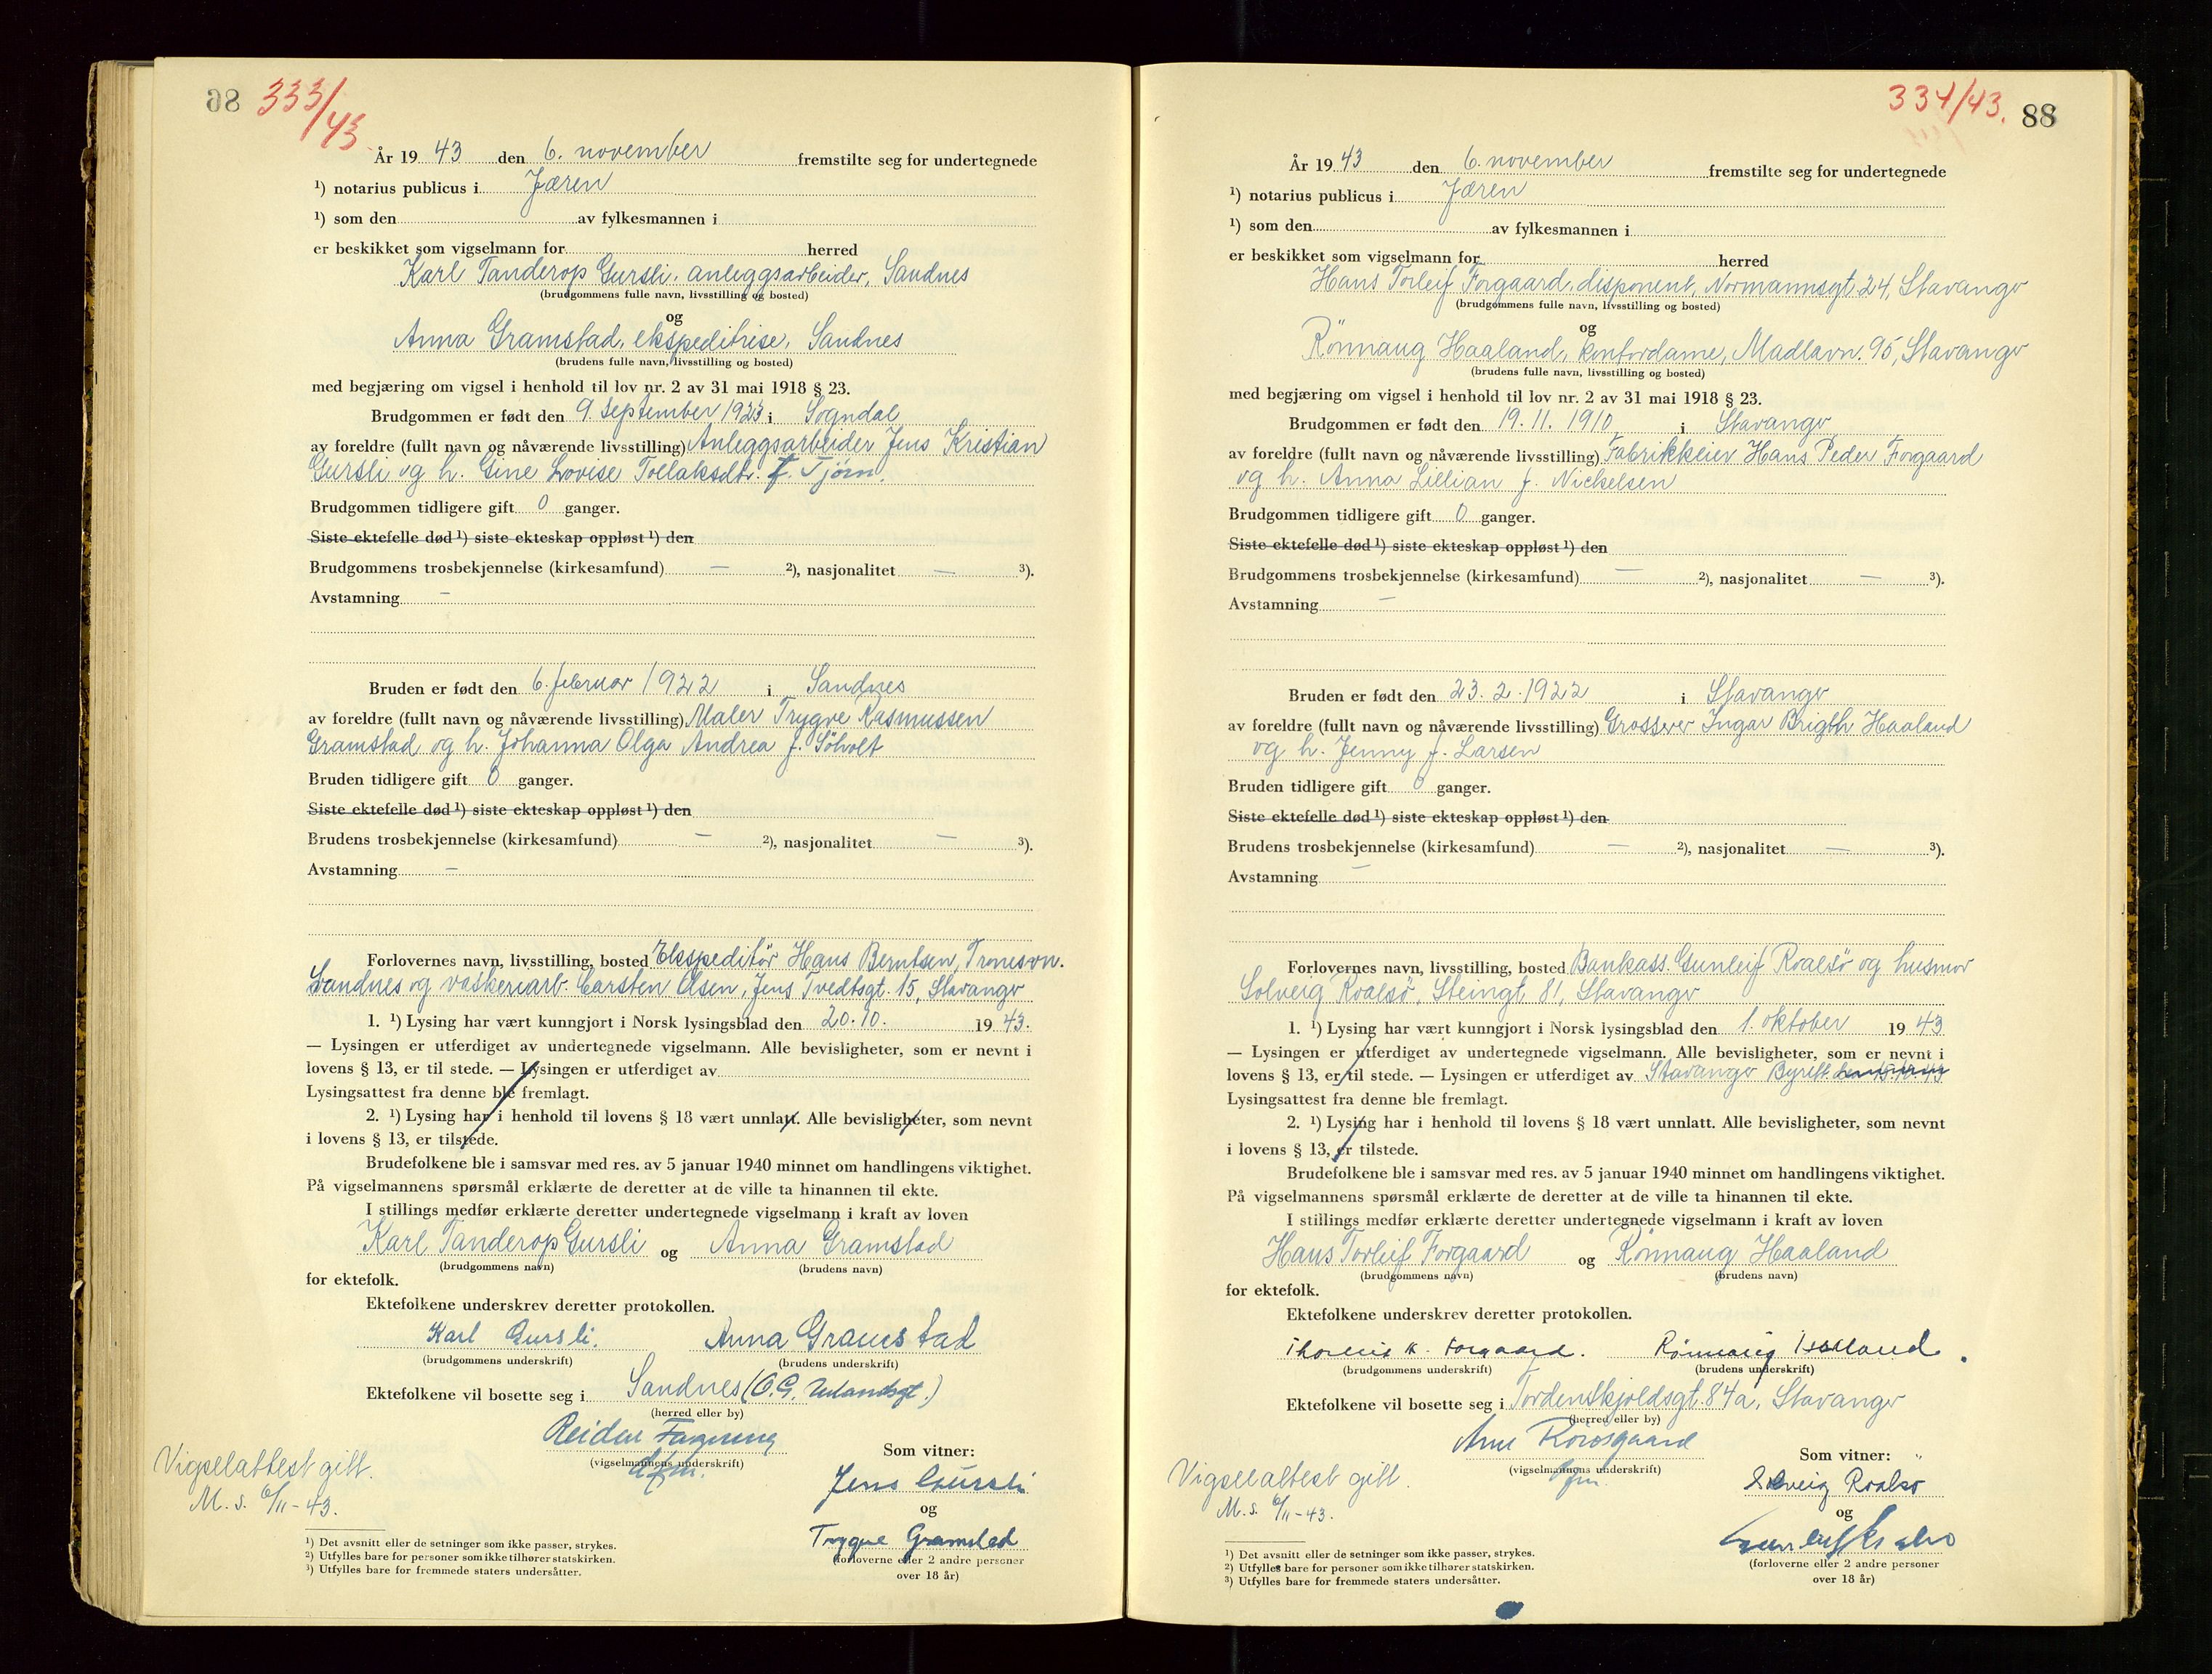 86
333/43
År 19 43 den 6. november fremstilte seg for undertegnede
¹) notarius publicus i Jæren
¹) som den av fylkesmannen i
er beskikket som vigselmann for herred
Karl Tanderop Gursli, anleggsarbeider, Sandnes
(brudgommens fulle navn, livsstilling og bosted)
og
Anna Gramstad, ekspeditrise, Sandnes
(brudens fulle navn, livsstilling og bosted)
med begjæring om vigsel i henhold til lov nr. 2 av 31 mai 1918 § 23.
Brudgommen er født den 9. september 1923 i Sogndal
av foreldre (fullt navn og nåværende livsstilling) Anleggsarbeider Jens Kristian
Gursli og h. Gine Lovise Tollaksdtr. f. Tjörn.
Brudgommen tidligere gift 0 ganger.
Siste ektefelle død ¹) siste ekteskap oppløst ¹) den
Brudgommens trosbekjennelse (kirkesamfund) — ²), nasjonalitet — ³).
Avstamning —
Bruden er født den 6. februar 1922 i Sandnes
av foreldre (fullt navn og nåværende livsstilling) Maler Trygve Rasmussen
Gramstad og h. Johanna Olga Andrea f. Söholt
Bruden tidligere gift 0 ganger.
Siste ektefelle død ¹) siste ekteskap oppløst ¹) den
Brudens trosbekjennelse (kirkesamfund) — ²), nasjonalitet — ³).
Avstamning —
Forlovernes navn, livsstilling, bosted Ekspeditör Hans Berntsen, Tronesvn.
Sandnes og vaskeriarb. Carsten Olsen, Jens Tvedtsgt. 15, Stavanger
1. ¹) Lysing har vært kunngjort i Norsk lysingsblad den 20.10. 19 43.
— Lysingen er utferdiget av undertegnede vigselmann. Alle bevisligheter, som er nevnt i
lovens § 13, er til stede. — Lysingen er utferdiget av
Lysingsattest fra denne ble fremlagt.
2. ¹) Lysing har i henhold til lovens § 18 vært unnlatt. Alle bevisligheter, som nevnt
i lovens § 13, er tilstede.
Brudefolkene ble i samsvar med res. av 5 januar 1940 minnet om handlingens viktighet.
På vigselmannens spørsmål erklærte de deretter at de ville ta hinannen til ekte.
I stillings medfør erklærte deretter undertegnede vigselmann i kraft av loven
Karl Tanderop Gursli og Anna Gramstad
(brudgommens navn) (brudens navn)
for ektefolk.
Ektefolkene underskrev deretter protokollen.
Karl Gursli. Anna Gramstad
(brudgommens underskrift) (brudens underskrift)
Ektefolkene vil bosette seg i Sandnes (O.G. )
(herred eller by)
Reidar
(vigselmannens underskrift)
dfm.
Som vitner:
Jens Gursli
og
Trygve Gramstad
(forloverne eller 2 andre personer
over 18 år)
Vigselattest gitt.
M. S. 6/11-43.
¹) Det avsnitt eller de setninger som ikke passer, strykes.
²) Utfylles bare for personer som ikke tilhører statskirken.
³) Utfylles bare for fremmede staters undersåtter.
334/43. 88
År 19 43 den 6. november fremstilte seg for undertegnede
¹) notarius publicus i Jæren
¹) som den av fylkesmannen i
er beskikket som vigselmann for herred
Hans Torleif Forgaard, disponent, Normannsgt 24, Stavanger
(brudgommens fulle navn, livsstilling og bosted)
og
Rönnaug Haaland, kontordame, Madlavn. 95, Stavanger
(brudens fulle navn, livsstilling og bosted)
med begjæring om vigsel i henhold til lov nr. 2 av 31 mai 1918 § 23.
Brudgommen er født den 19. 11. 1910 i Stavanger
av foreldre (fullt navn og nåværende livsstilling) Fabrikkeier Hans Peder Forgaard
og h. Anna Lillian f. Nickelsen
Brudgommen tidligere gift 0 ganger.
Siste ektefelle død ¹) siste ekteskap oppløst ¹) den
Brudgommens trosbekjennelse (kirkesamfund) — ²), nasjonalitet — ³).
Avstamning —
Bruden er født den 23. 2. 1922 i Stavanger
av foreldre (fullt navn og nåværende livsstilling) Grosserer Ingar Brigth Haaland
og h. Jenny f. Larsen
Bruden tidligere gift 0 ganger.
Siste ektefelle død ¹) siste ekteskap oppløst ¹) den
Brudens trosbekjennelse (kirkesamfund) — ²), nasjonalitet — ³).
Avstamning —
Forlovernes navn, livsstilling, bosted Bankass. Gunleif Roalsö og husmor
Solveig Roalsö, Steingt 81, Stavanger
1. ¹) Lysing har vært kunngjort i Norsk lysingsblad den 1. oktober 19 43
— Lysingen er utferdiget av undertegnede vigselmann. Alle bevisligheter, som er nevnt i
lovens § 13, er til stede. — Lysingen er utferdiget av Stavanger Byrett
Lysingsattest fra denne ble fremlagt.
2. ¹) Lysing har i henhold til lovens § 18 vært unnlatt. Alle bevisligheter, som nevnt
i lovens § 13, er tilstede.
Brudefolkene ble i samsvar med res. av 5 januar 1940 minnet om handlingens viktighet.
På vigselmannens spørsmål erklærte de deretter at de ville ta hinannen til ekte.
I stillings medfør erklærte deretter undertegnede vigselmann i kraft av loven
Hans Torleif Forgaard og Rönnaug Haaland
(brudgommens navn) (brudens navn)
for ektefolk.
Ektefolkene underskrev deretter protokollen.
H. Forgaard. Rönnaug Haaland.
(brudgommens underskrift) (brudens underskrift)
Ektefolkene vil bosette seg i Tordenskjoldsgt. 84a, Stavanger
(herred eller by)
Arne
(vigselmannens underskrift)
Som vitner:
Solveig Roalsö
og
(forloverne eller 2 andre personer
over 18 år)
Vigselattest gitt.
M. S. 6/11-43.
¹) Det avsnitt eller de setninger som ikke passer, strykes.
²) Utfylles bare for personer som ikke tilhører statskirken.
³) Utfylles bare for fremmede staters undersåtter.